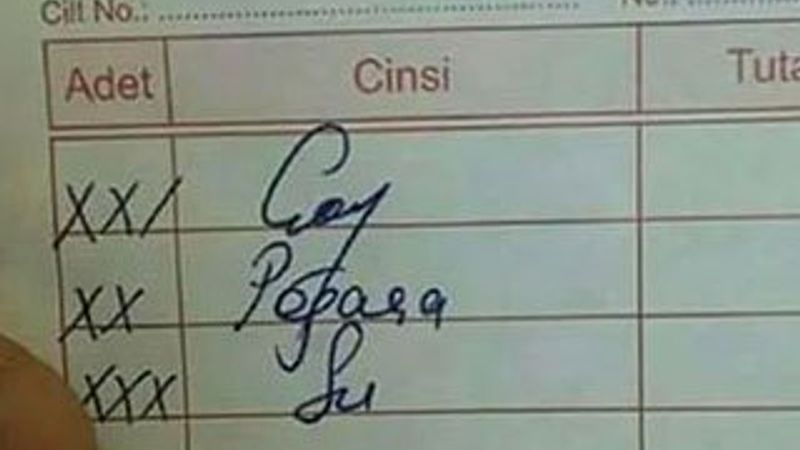 Cilt No.:
Adet Cinsi Tuta
XX/ Çay
XX Poğaça
XXX Su